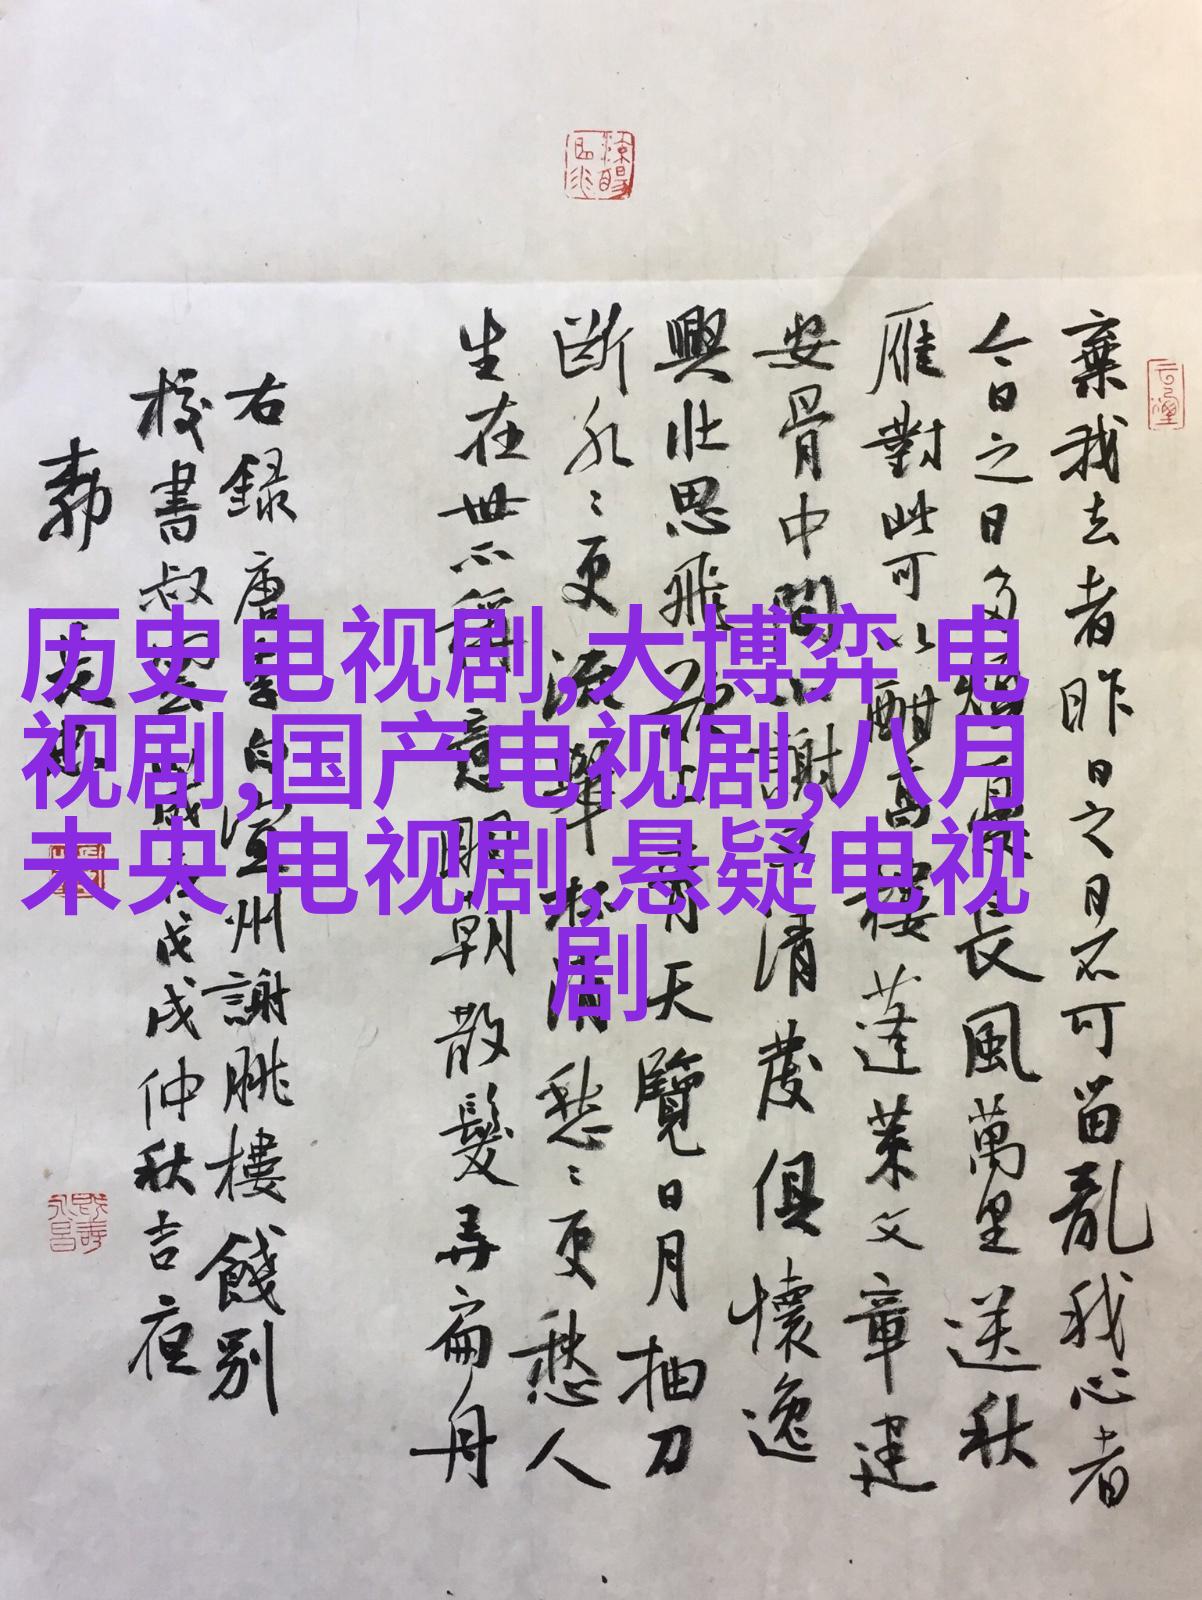 棄我去者昨日之日不可留亂我心者
今日之日多煩憂長風萬里送秋
雁對此可以酣高樓蓬萊文章建
安骨中間小謝又清發俱懷逸
興壯思飛欲上青天覽日月抽刀
斷水〻更流舉杯消愁〻更愁人
生在世不稱意明朝散髮弄扁舟
右録唐李白宣州謝脁樓餞別
校書叔雲戊戌仲秋吉夜
历史电视剧,大博弈 电
视剧,国产电视剧,八月
未央 电视剧,悬疑电视
剧